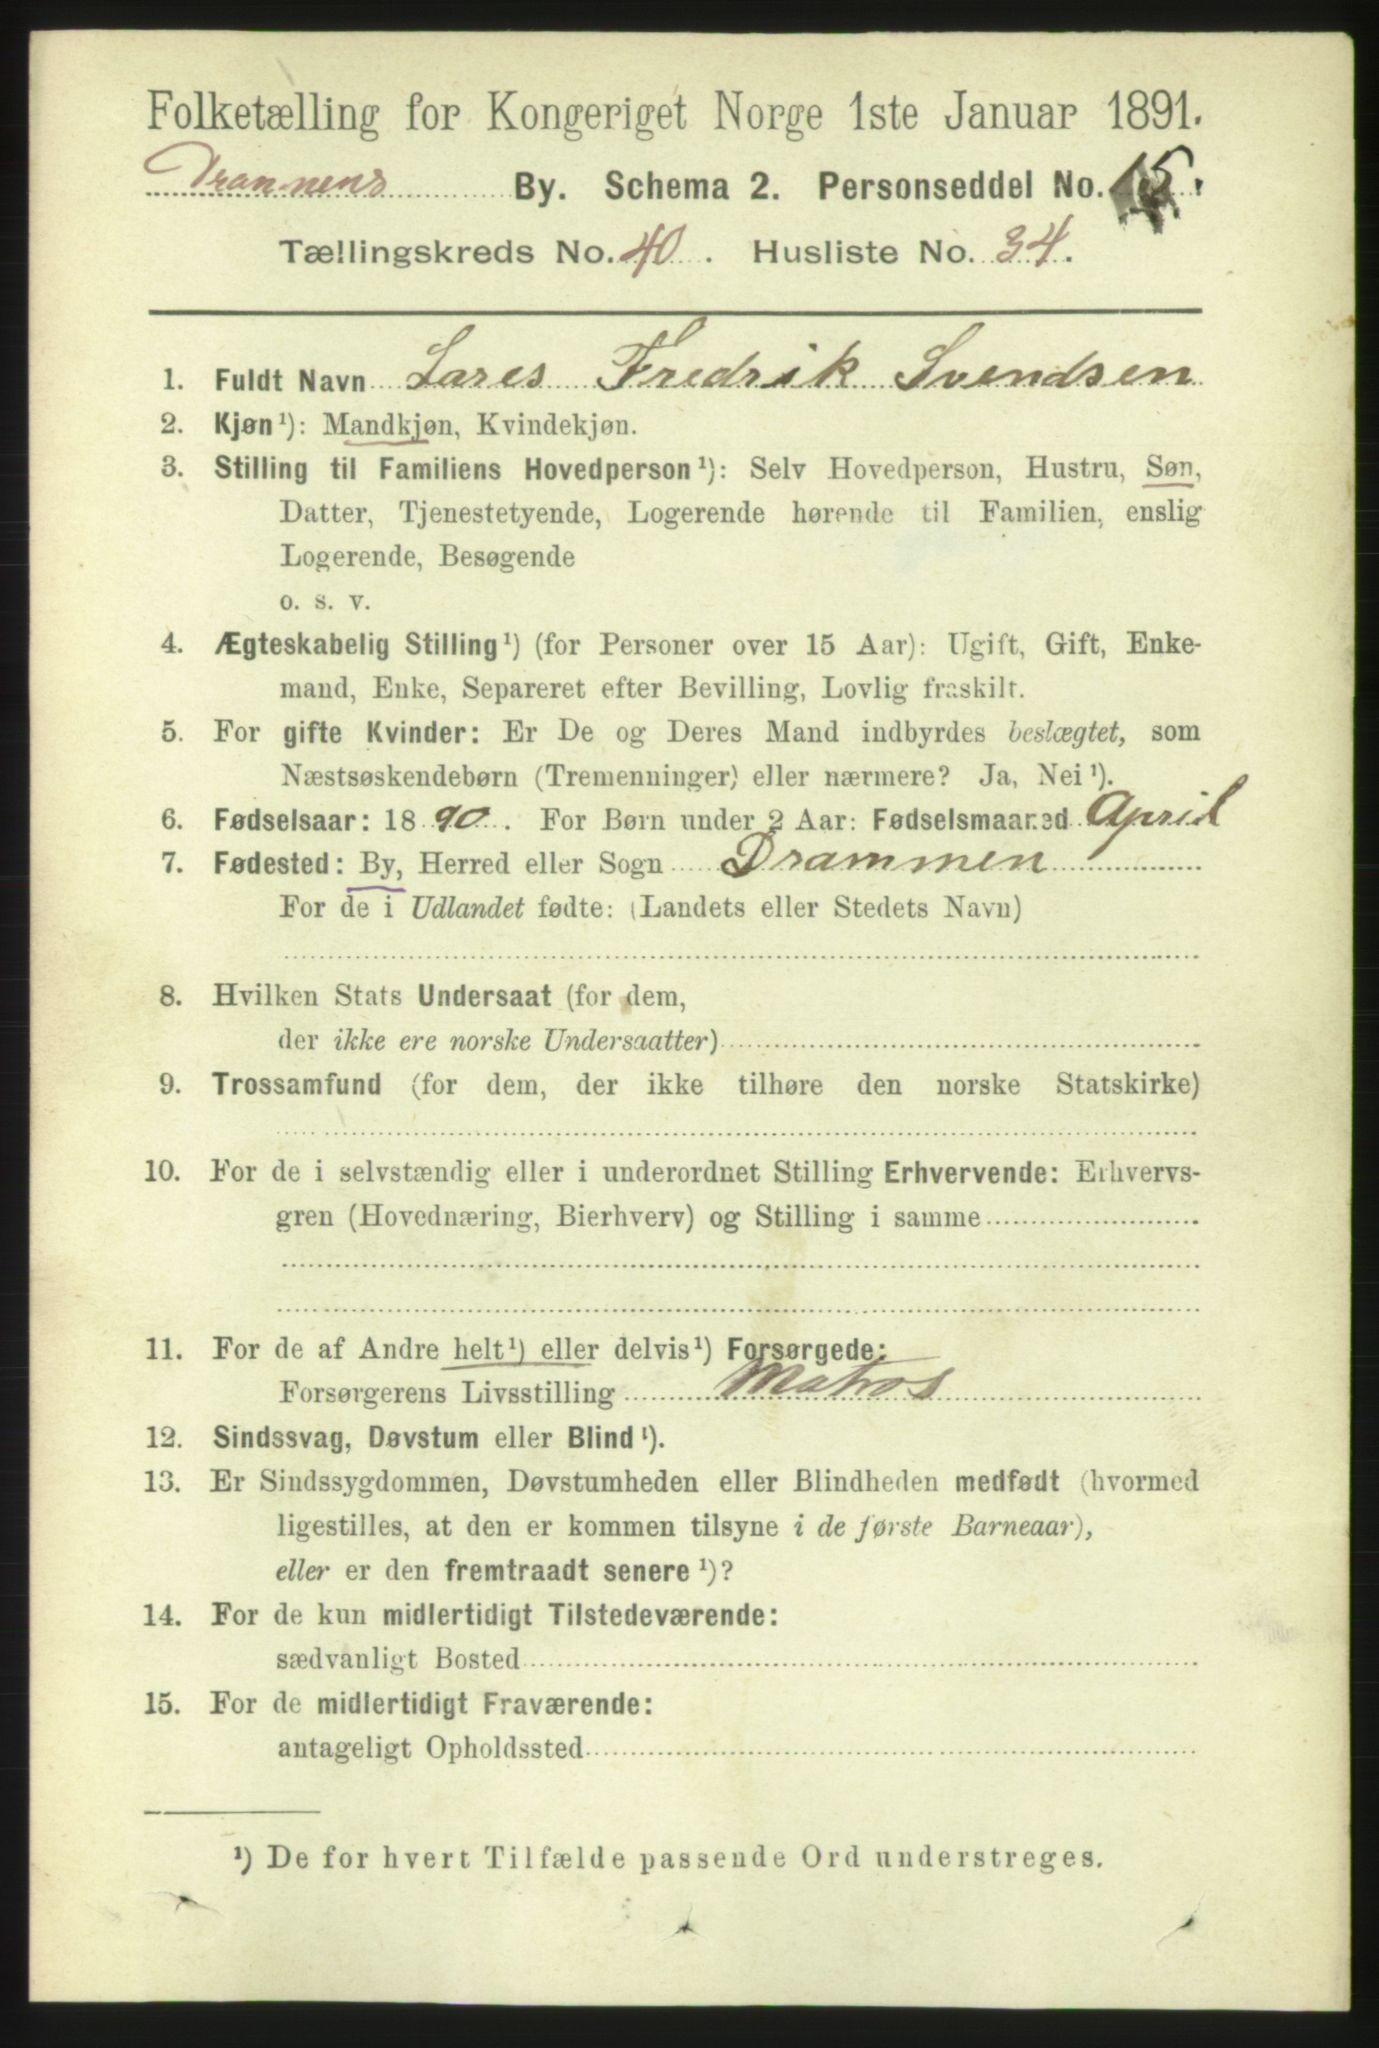 Folketælling for Kongeriget Norge 1ste Januar 1891.
Drammens By. Schema 2. Personseddel No. 15.
Tællingskreds No. 40. Husliste No. 34.
1. Fuldt Navn Lares Fredrik Svendsen
2. Kjøn¹): Mandkjøn, Kvindekjøn.
3. Stilling til Familiens Hovedperson¹): Selv Hovedperson, Hustru, Søn,
Datter, Tjenestetyende, Logerende hørende til Familien, enslig
Logerende, Besøgende
o. s. v.
4. Ægteskabelig Stilling¹) (for Personer over 15 Aar): Ugift, Gift, Enke-
mand, Enke, Separeret efter Bevilling, Lovlig fraskilt.
5. For gifte Kvinder: Er De og Deres Mand indbyrdes beslægtet, som
Næstsøskendebørn (Tremenninger) eller nærmere? Ja, Nei¹).
6. Fødselsaar: 1890. For Børn under 2 Aar: Fødselsmaaned April
7. Fødested: By, Herred eller Sogn Drammen
For de i Udlandet fødte: (Landets eller Stedets Navn)
8. Hvilken Stats Undersaat (for dem,
der ikke ere norske Undersaatter)
9. Trossamfund (for dem, der ikke tilhøre den norske Statskirke)
10. For de i selvstændig eller i underordnet Stilling Erhvervende: Erhvervs-
gren (Hovednæring, Bierhverv) og Stilling i samme
11. For de af Andre helt¹) eller delvis¹) Forsørgede:
Forsørgerens Livsstilling Matros
12. Sindssvag, Døvstum eller Blind¹).
13. Er Sindssygdommen, Døvstumheden eller Blindheden medfødt (hvormed
ligestilles, at den er kommen tilsyne i de første Barneaar),
eller er den fremtraadt senere¹)?
14. For de kun midlertidigt Tilstedeværende:
sædvanligt Bosted
15. For de midlertidigt Fraværende:
antageligt Opholdssted
¹) De for hvert Tilfælde passende Ord understreges.